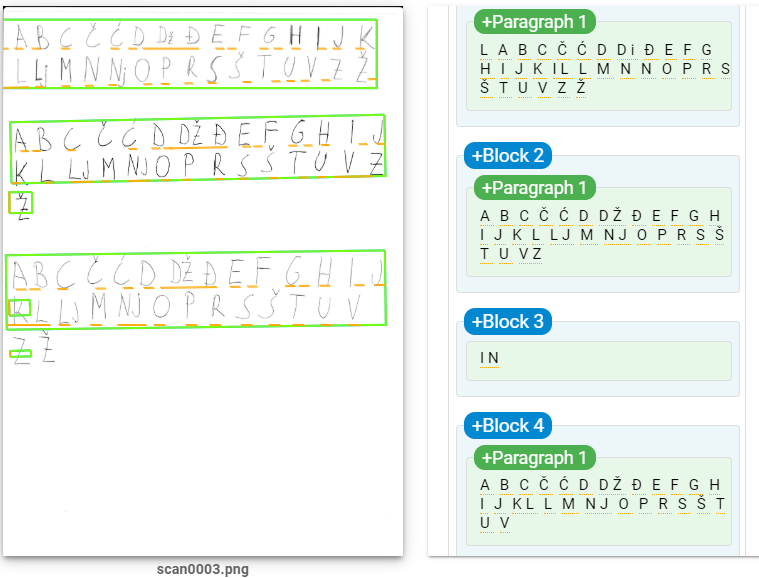 A B C Č Ć D Dž Đ E F G H I J K
L Lj M N Nj O P R S Š T U V Z Ž
A B C Č Ć D DŽ Đ E F G H I J
K L LJ M NJ O P R S Š T U V Z
Ž
A B C Č Ć D DŽ Đ E F G H I J
K L Lj M NJ O P R S Š T U V
Z Ž
scan0003.png
+Paragraph 1
L A B C Č Ć D Di Đ E F G
H I J K IL L M N N O P R S
Š T U V Z Ž
+Block 2
+Paragraph 1
A B C Č Ć D DŽ Đ E F G H
I J K L LJ M NJ O P R S Š
T U VZ
+Block 3
I N
+Block 4
+Paragraph 1
A B C Č Ć D DŽ Đ E F G H
I J KL L M NJ O P R S Š T
U V